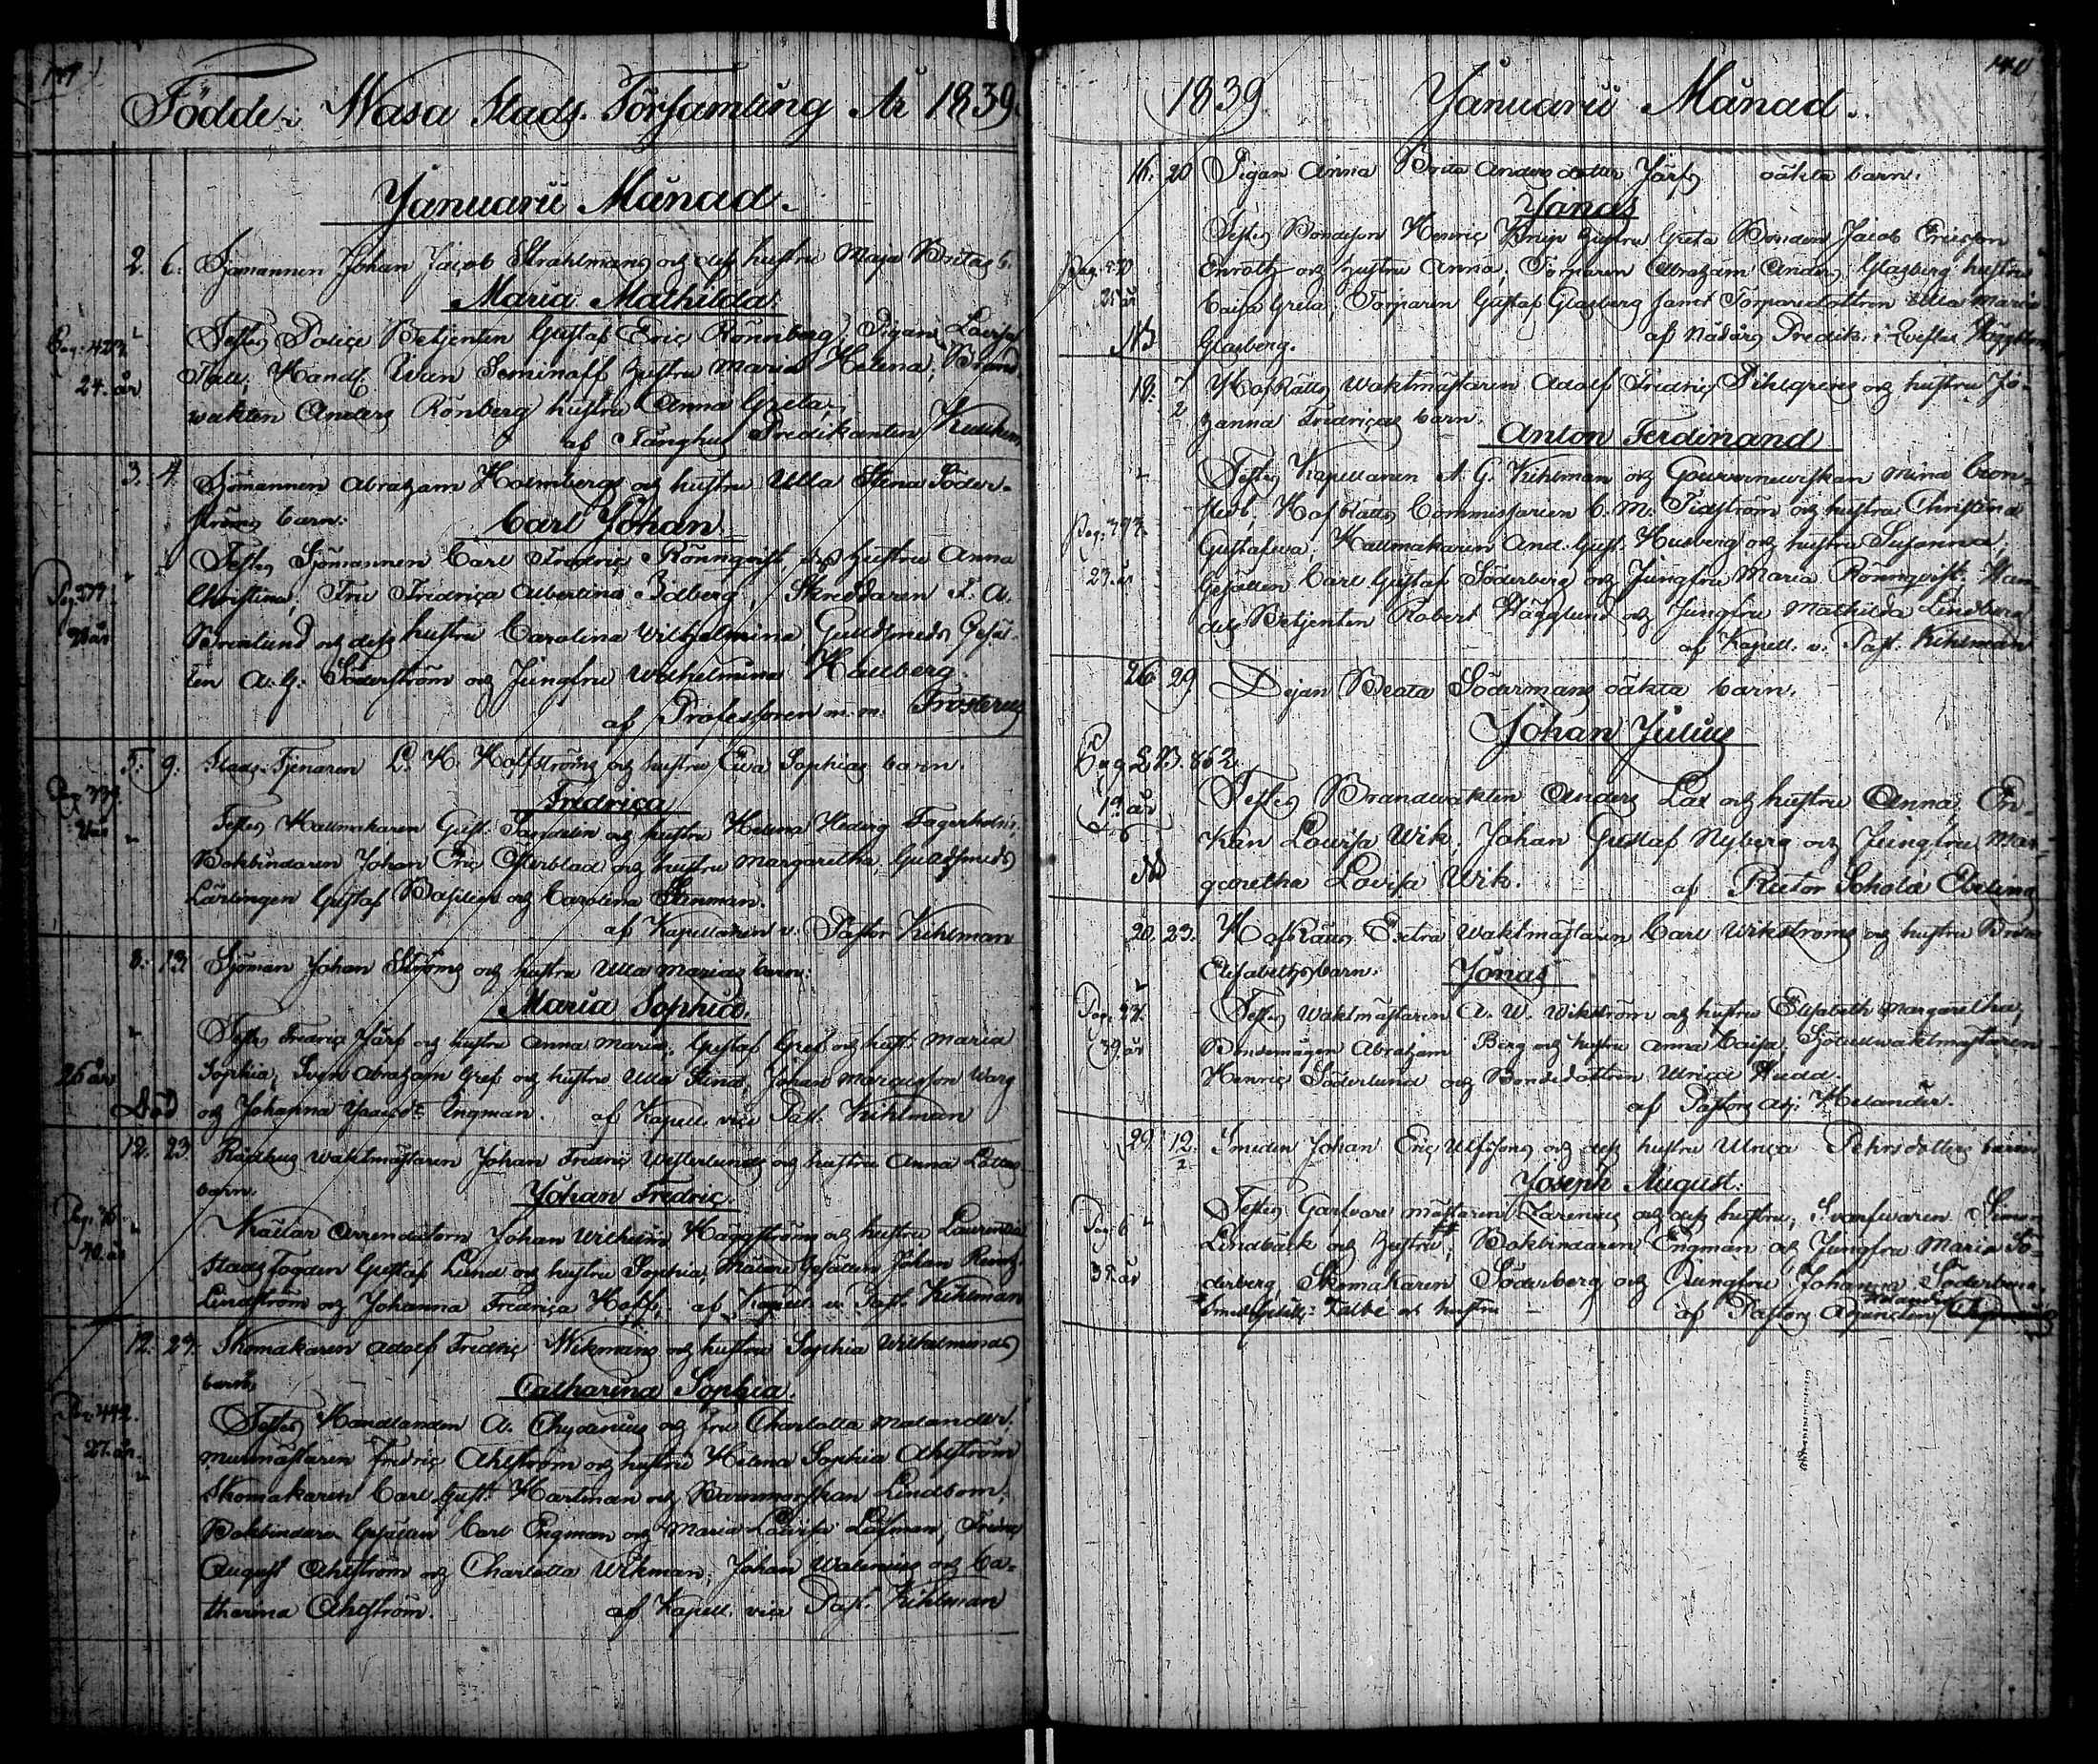 Födde i Wasa Stads Församling År 1839.
Januarii Månad.
2. 6. Sjömannen Johan Jacob Strahlmans och dess hustru Maja Britas b.
Maria Mathilda.
Pag. 423. Testes Police Betjenten Gustaf Eric Rönnberg, Pigan Lovisa
24. år Handl. Iwan Seminoff hustru Maria Helena; Brand
wakten Anders Rönberg hustru Anna Greta,
af Fänghus Predikanten
3. 4. Sjömannen Abraham Holmbergs och hustru Ulla Stena Söder-
ströms barn.
Carl Johan
Testes Sjömannen Carl Fredric Rönnqvist, dess hustru Anna
Christina, Fru Fredrica Albertina Bidberg, Skreddaren F. A.
och dess hustru Carolina Wilhelmina, Guldsmeds Gesäl-
len A. G. Söderström och Jungfru Wilhelmina Hallberg.
af Professoren m.m. Frosterus
5. 9. Stads Tjenaren L. H. Holfströms och hustru Ewa Sophias barn.
Pag. 339.
Fredrica
Testes Hattmakaren Gust. Sandelin och hustru Helena Hedvig Fagerholm;
Bokbindaren Johan Eric Österblad och hustru Margaretha, Guldsmeds
Lärlingen Gustaf och Carolina Stenman.
af Kapellanen v. Pastor Kihlman
8. 13. Sjöman Johan Ströms och hustru Ulla Marias barn.
Maria Sophia.
Testes Fredric Järf och hustru Anna Maria; Gustaf Gref och hust. Maria
26 år Sophia; Sven Abraham Gref och hustru Ulla Stena; Johan Marcusson Warg
Död och Johanna Ingman. af Kapell. vice Past. Kihlman
12. 23. Rådhus waktmästaren Johan Fredric Westerlunds och hustru Anna Lottas
barn.
Johan Fredric.
Pag. 76. Källar Arrendatorn Johan Wilhelm Häggströms och hustru Laurentia
40. år Stads fogden Gustaf Lund och hustru Sophia; Målare Gesällen Johan Reinh.
Lindström och Johanna Fredrica Hoff; af Kapell. v. Past. Kihlman
12. 27. Skomakaren Adolf Fredric Wikmans och hustru Sophia Wilhelminas
barn.
Catharina Sophia.
Pag. 442. Testes Handlanden A. Chydenius och Fru Charlotta Malander;
27. år. murmästaren Fredric Ahlström och hustru Helena Sophia Ahlström
Skomakaren Carl Gust. Hartman och Barnmorskan Lindbom;
Bokbindare Gesällen Carl Engman och Maria Lovisa Löfman;
August Ahlström och Charlotta Wikman; Johan Walenius och Ca-
tharina Ahlström. af Kapell. vice Past. Kihlman
140
1839. Januarii Månad.
16. 20 Pigan Anna Brita Andersdotter Järfs oäkta barn.
Jonas
Testes Bondeson Henric hustru Greta Bonden Jacob Ericsson
Pag. 520 Enrolth och hustru Anna; Torparen Abraham Anders. Glasberg hustru
21 år Caisa Greta; Torparen Gustaf Glasberg samt Torparedottren Ulla Maria
Glasberg. af Nådårs Predik. i Qveflax Häggblom
18. 7/2 HofRätts waktmästaren Adolf Fredric Pihlgrens och hustru Jo-
hanna Fredricas barn.
Anton Ferdinand
Testes Kapellanen A. G. Kihlman och Gouvernewrskan Mina Cron-
stedt, HofRätts Commissarien C. M. Tidström och hustru Christina
Pag. 393. Gustafwa; Hattmakaren And. Gust. Husberg och hustru Susanna;
23. år Gesällen Carl Gustaf Söderberg och Jungfru Maria Rönnqvist. Han-
dels Betjenten Robert Hägglund och Jungfru Mathilda Lindberg
af Kapell. v. Past. Kihlman
26 29 Dejan Beata Södermans oäkta barn.
Johan Julius
Pag L.B. 862.
19. år Testes Brandwakten Anders Lax och hustru Anna; En-
kan Lovisa Wik, Johan Gustaf Nyberg och Jungfru Mar-
garetha Lovisa Wik. af Rector Schola Ebeling
20. 23. HofRätts Extra waktmästaren Carl Wikströms och hustru Brita
Elisabeths barn.
Jonas
Pag. 27. Testes waktmästaren A. W. Wikström och hustru Elisabeth Margaretha;
39. år Bondemågen Abraham Berg och hustru Anna Caisa; Sjötullwaktmästaren
Henric Söderlund och Bondedottren Ulrica Hedd.
af Pastors Adj. Helander.
29. 12/2 Smeden Johan Eric Ulfssons och dess hustru Ulrica Pehrsdotters barn
Joseph August.
Pag 6 Testes Garfvare mästaren Larenius och dess hustru; Svarfwaren Simon
Lindbäck och hustru; Bokbindaren Engman och Jungfru Maria Sö-
35. år derberg, Skomakaren Söderberg och Jungfru Johanna Söderberg,
Talbe och hustru af Pastors Adjuncten Helander